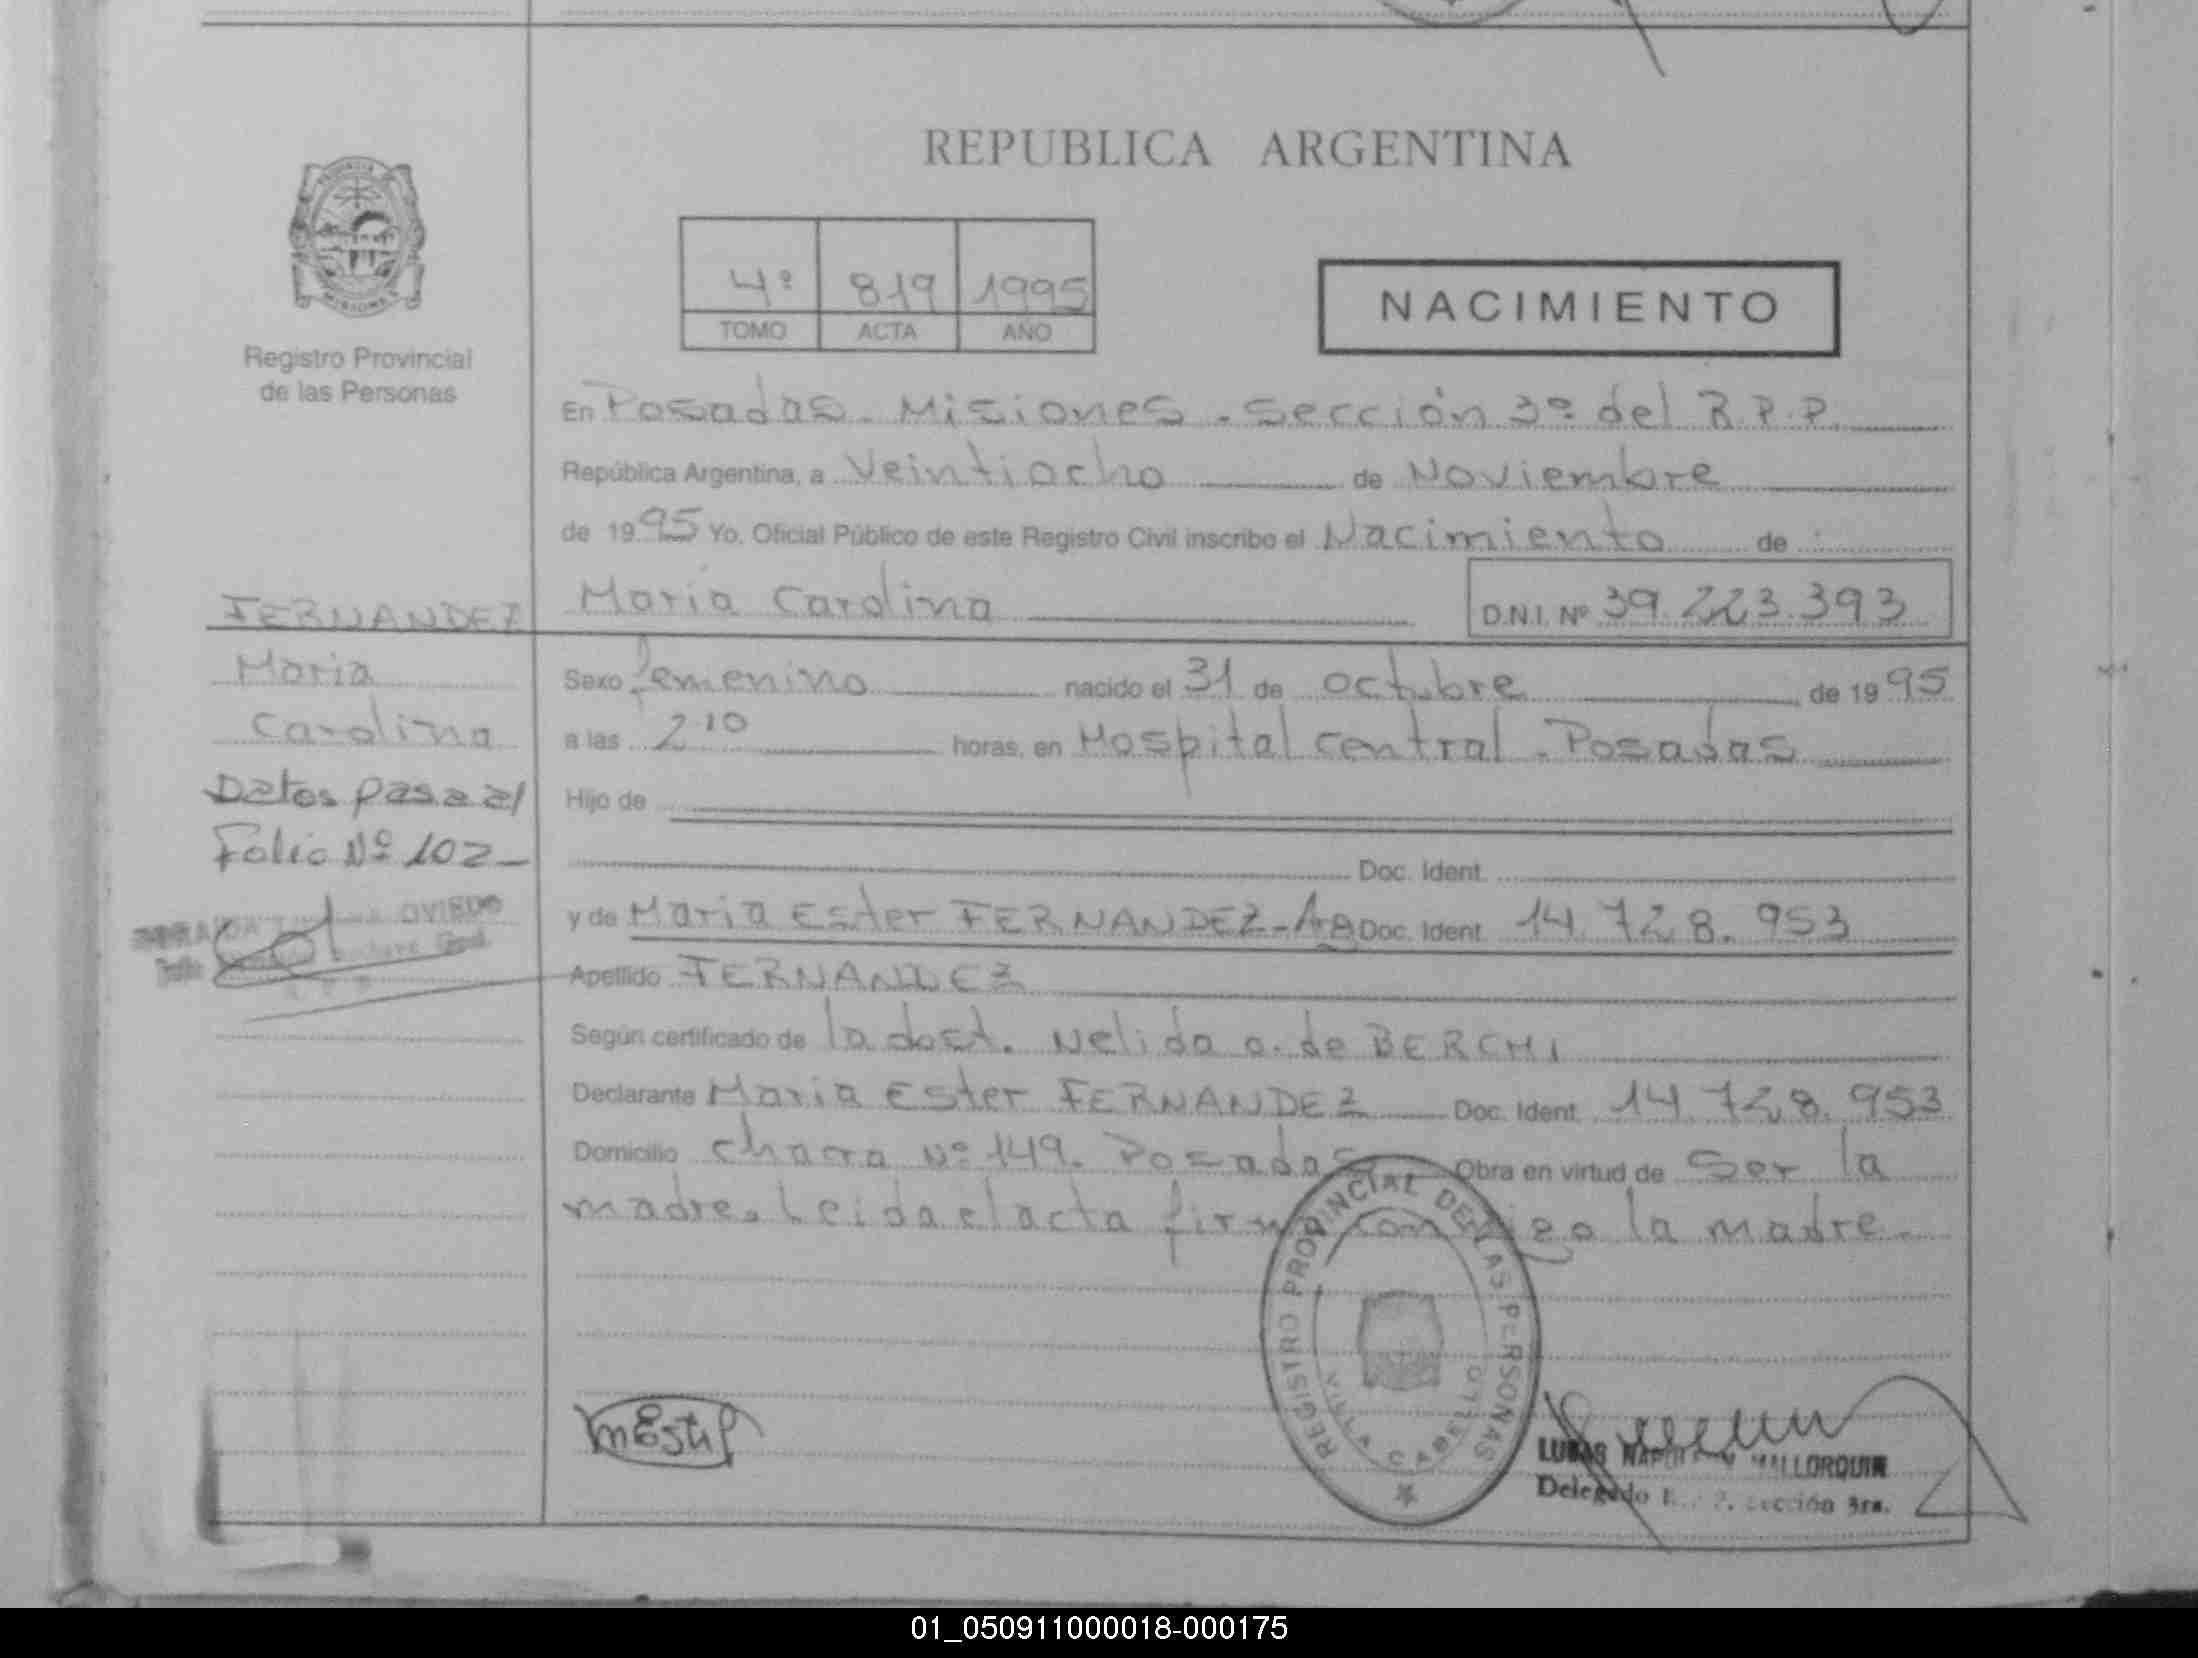 REPUBLICA ARGENTINA
PROVINCIA
MISIONES
Registro Provincial
de las Personas
4º 819 1995
TOMO ACTA AÑO
NACIMIENTO
En Posadas - Misiones - Sección 3º del R.P.P.
República Argentina, a Veintiocho de Noviembre
de 1995 Yo, Oficial Público de este Registro Civil inscribo el Nacimiento de :
Maria Carolina D.N.I. Nº 39.223.393
FERNANDEZ
Maria
Carolina
Datos pasa al
Folio Nº 102-
OVIEDO
Sexo femenino nacido el 31 de octubre de 1995
a las 2:10 horas, en Hospital central - Posadas
Hijo de
Doc. Ident.
y de Maria Ester FERNANDEZ - Doc. Ident. 14.728.953
Apellido FERNANDEZ
Según certificado de la doct. Nelida o. de BERCHI
Declarante Maria Ester FERNANDEZ Doc. Ident. 14.728.953
Domicilio chacra Nº 149. Posadas Obra en virtud de Ser la
madre. Leida el acta firma conmigo la madre.
REGISTRO PROVINCIAL DE LAS PERSONAS
VILLA CABELLO
MALLORQUIN
Delegado Sección 3ra.
01_050911000018-000175